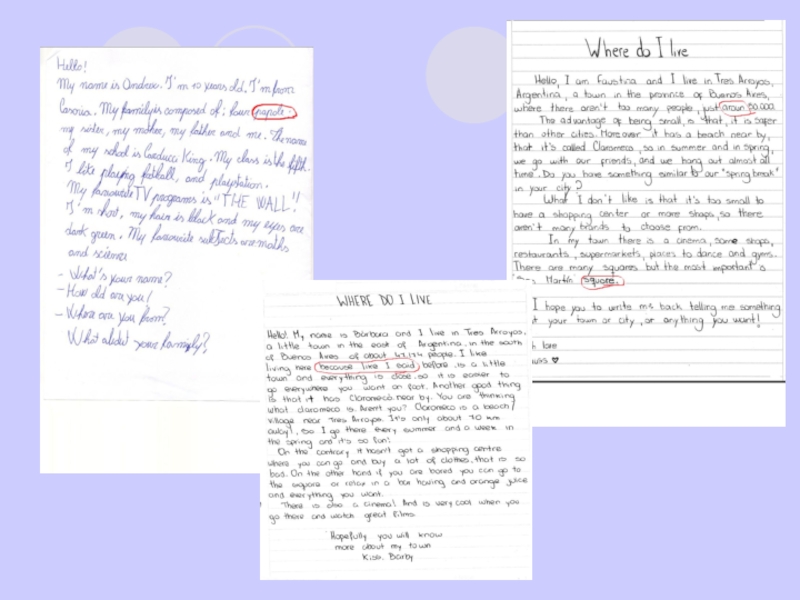 Hello!
My name is Andrew. I'm 10 years old. I'm from
Casoria. My family is composed of: four papole:
my sister, my mother, my father and me. The name
of my school is Carducci King. My class is the fifth.
I like playing football, and playstation.
My favourite TV programs is "THE WALL"!
I'm short, my hair is black and my eyes are
dark green. My favourite subjects are maths
and science
- What's your name?
- How old are you?
- Where are you from?
What about your family?
Where do I live
Hello, I am Faustina and I live in Tres Arroyos,
Argentina, a town in the province of Buenos Aires,
where there aren't too many people, just aroun 50.000
The advantage of being small, is that, it is safer
than other cities. Moreover it has a beach near by,
that it's called Claromeco, so in summer and in spring,
we go with our friends, and we hang out almost all
time. Do you have something similar to our "spring break"
in your city?
What I don't like is that it's too small to
have a shopping center or more shops, so there
aren't many brands to choose from.
In my town there is a cinema, some shops,
restaurants, supermarkets, places to dance and gyms.
There are many squares but the most important is
Martin square.
I hope you to write me back telling me something
your town or city, or anything you want!
love
WHERE DO I LIVE
Hello! My name is Bárbara and I live in Tres Arroyos,
a little town in the east of Argentina, in the south
of Buenos Aires of about people. I like
living here because like I said before is a little
town and everything is close. so it is easier to
go everywhere you want on foot. Another good thing
is that it has Claromecó near by. You are thinking
what claromeco is. Aren't you? Claromeco is a beach/
village near Tres Arroyos. It's only about 70 km
away!, So I go there every summer and a week in
the spring and it's so fun!
On the contrary it hasn't got a shopping centre
where you can go and buy a lot of clothes. that is so
bad. On the other hand if you are bored you can go to
the square or relax in a bar having and orange juice
and everything you want.
There is also a cinema! And is very cool when you
go there and watch great films.
Hopefully you will know
more about my town
Kiss. Barby